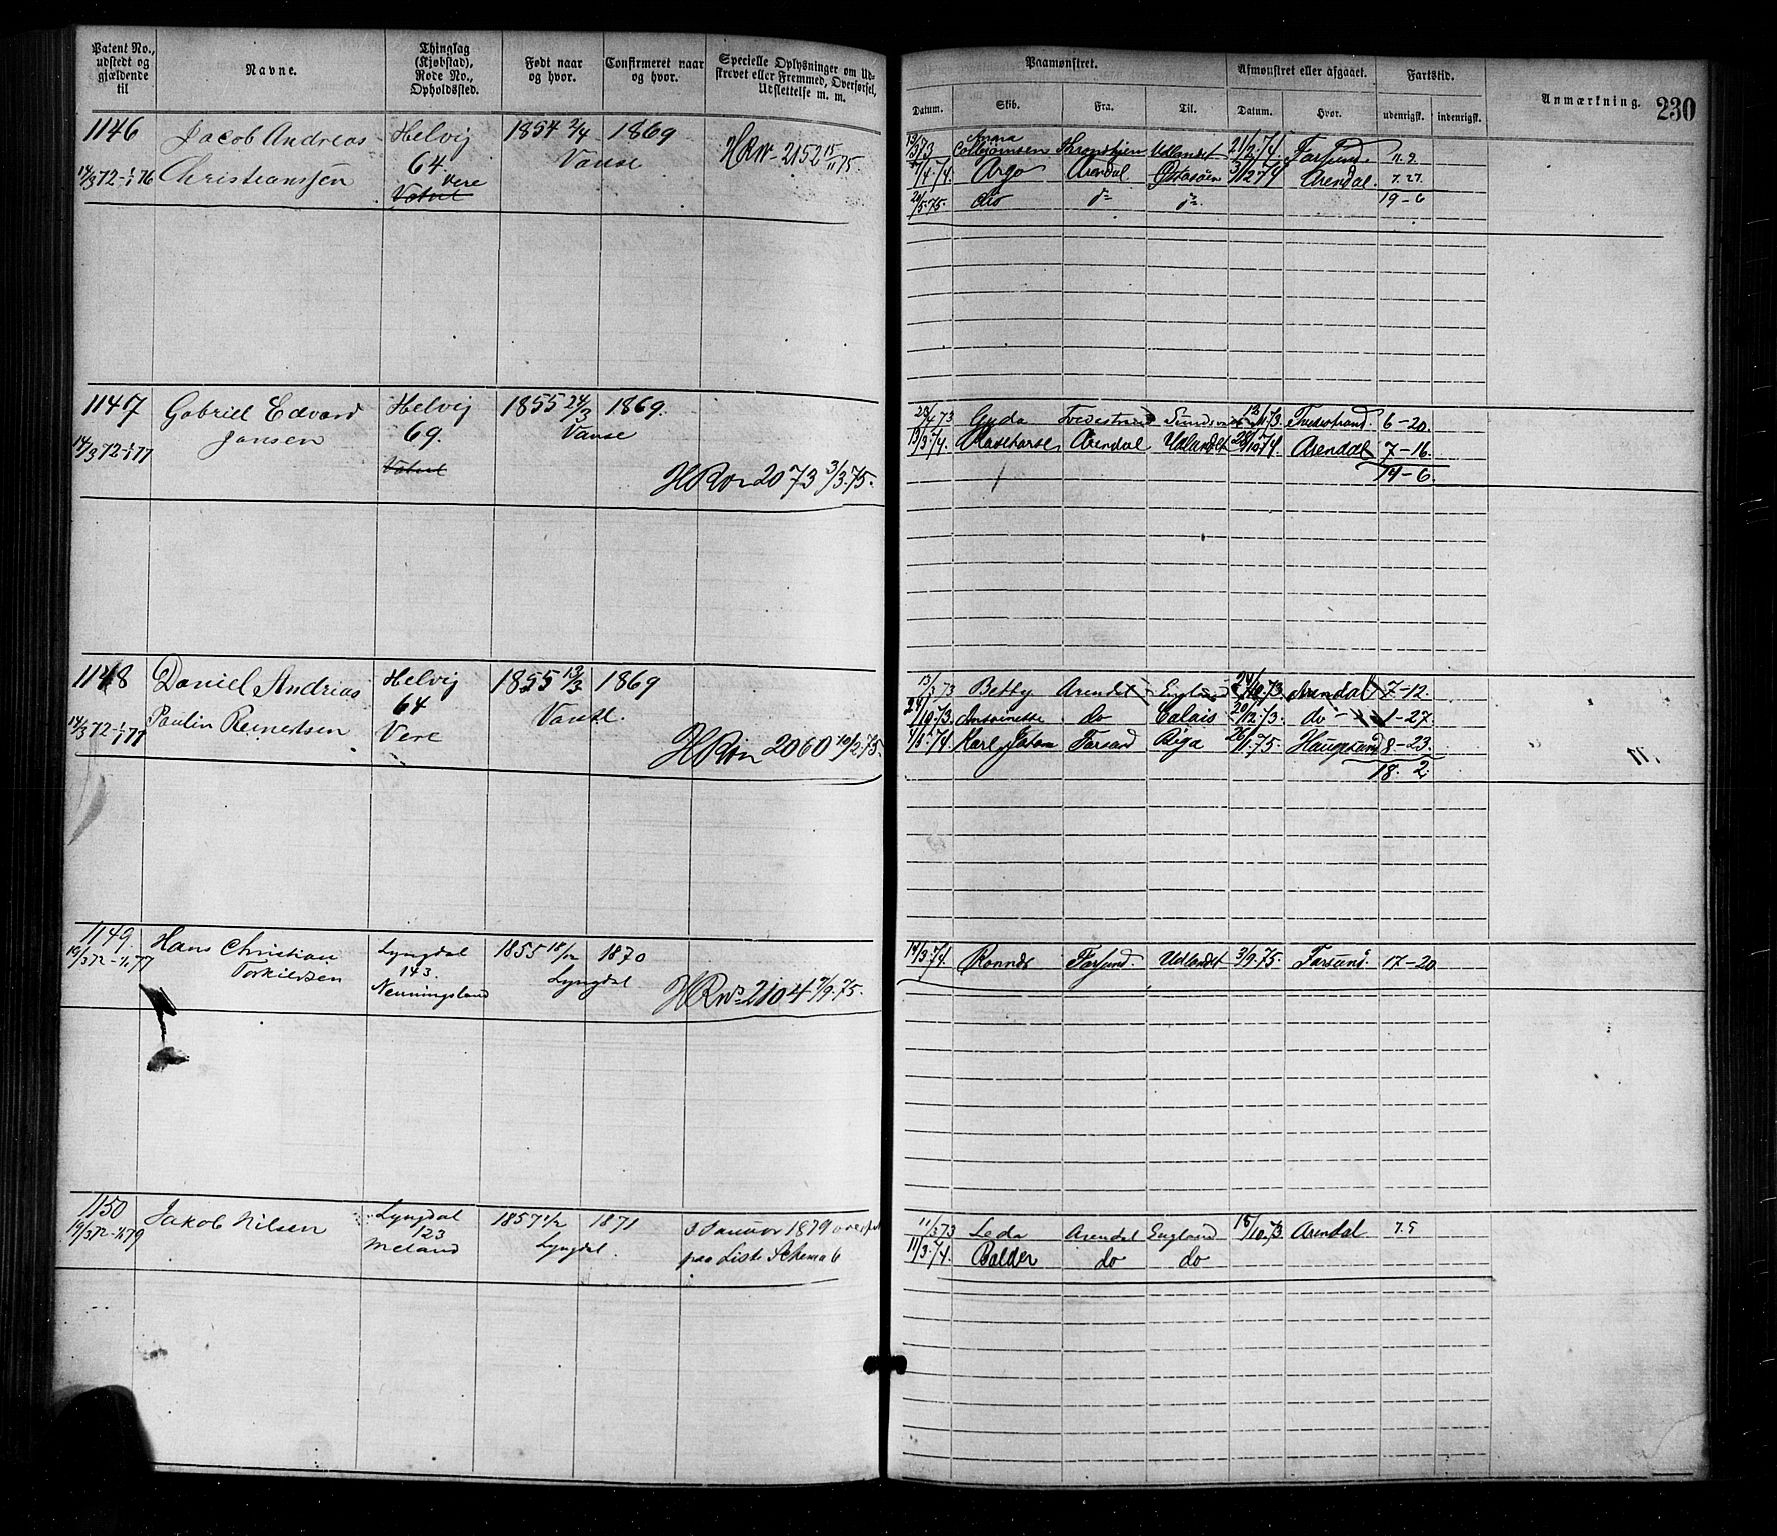 Patent No., udstedt og gjældende til
Navne.
Thinglag (Kjøbstad), Rode No., Opholdssted.
Født naar og hvor.
Confirmeret naar og hvor.
Specielle Oplysninger om Udskrevet eller Fremmed, Overførsel, Udslettelse m. m.
Paamønstret.
Datum.
Skib.
Fra.
Til.
Afmønstret eller afgaaet.
Datum.
Hvor.
Fartstid.
udenrigsk.
indenrigsk.
Anmærkning.
230
1146 Jacob Andreas Helvig 1854 2/4 1869
14/3 72-1/1 76 Christianssen 64. Vanse
Vere
Vatne
HRNo 2152 15/11 75.
19/3 73 Anna Colbjørnsen Thronhjem Udlandet 21/2 74 Farsund. 11. 2.
7/4 74. Argo Arendal Østasöen 3/12 74 Arendal. 7. 27.
do 19-6
1147 Gabriel Edvard Helvig 1855 24/3 1869.
14/3 72-1/1 77 Jansen 69. Vanse
HRNo 2073 3/3. 75.
Gyda Tvedestrand 6-20.
13/3 74. Arendal Udlandet Arendal 7-16.
14-6.
1148 Daniel Andreas Helvig 1855 13/3 1869
14/3 72-1/1 77 Paulin Reinertsen 64 Vanse.
Vere
HRNo 2060 10/2. 75.
13/3 73 Betty Arendal England 24/10. 73. Arendal 7-12.
Antoinette do Calais 20/12. 73. do 1-27.
Karl Johan Farsund Riga 26/1. 75. Haugesund 8-23.
18. 2.
1149. Hans Christian Lyngdal 1855 18/12 1870
19/3 72-1/1 77 Torkildsen 143. Lyngdal
Nenningsland
HRNo 2104 7/9. 75.
14/3. 74 Farsund. Udlandet 3/9. 75 Farsund. 17-20
1150 Jakob Nilsen Lyngdal 1857 1/2 1871
19/3 72-1/1 79 123 Lyngdal.
Meland
3 Januar 1879 overført
paa Liste Schema 6
11/3 73 Leda Arendal England 18/10. 73 Arendal 7. 5
11/3. 74. Balder do do